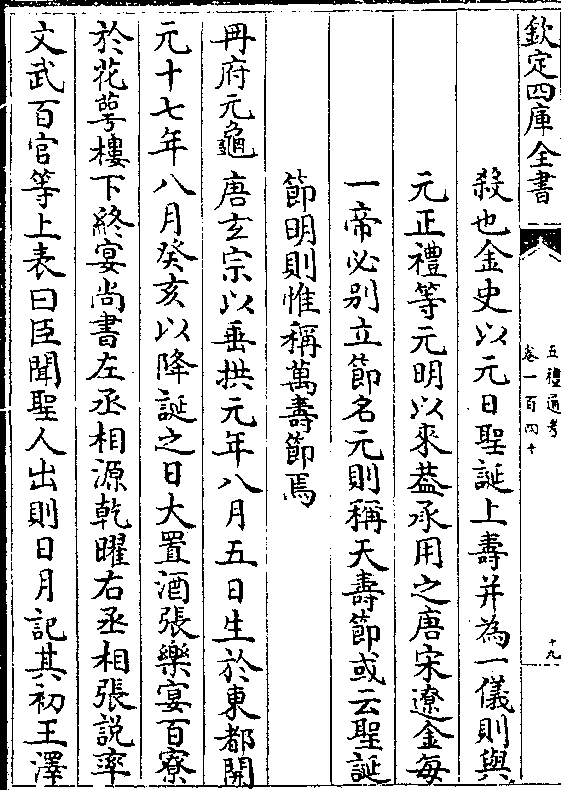 欽定四庫全書
五禮通考
卷一百四十
十九
殺也金史以元日聖誕上壽并為一儀則與
元正禮等元明以來葢承用之唐宋遼金每
一帝必别立節名元則稱天壽節或云聖誕
節明則惟稱萬壽節焉
冊府元龜唐玄宗以垂拱元年八月五日生於東都開
元十七年八月癸亥以降誕之日大置酒張樂宴百寮
於花萼樓下終宴尚書左丞相源乾曜右丞相張說率
文武百官等上表曰臣聞聖人出則日月記其初王澤